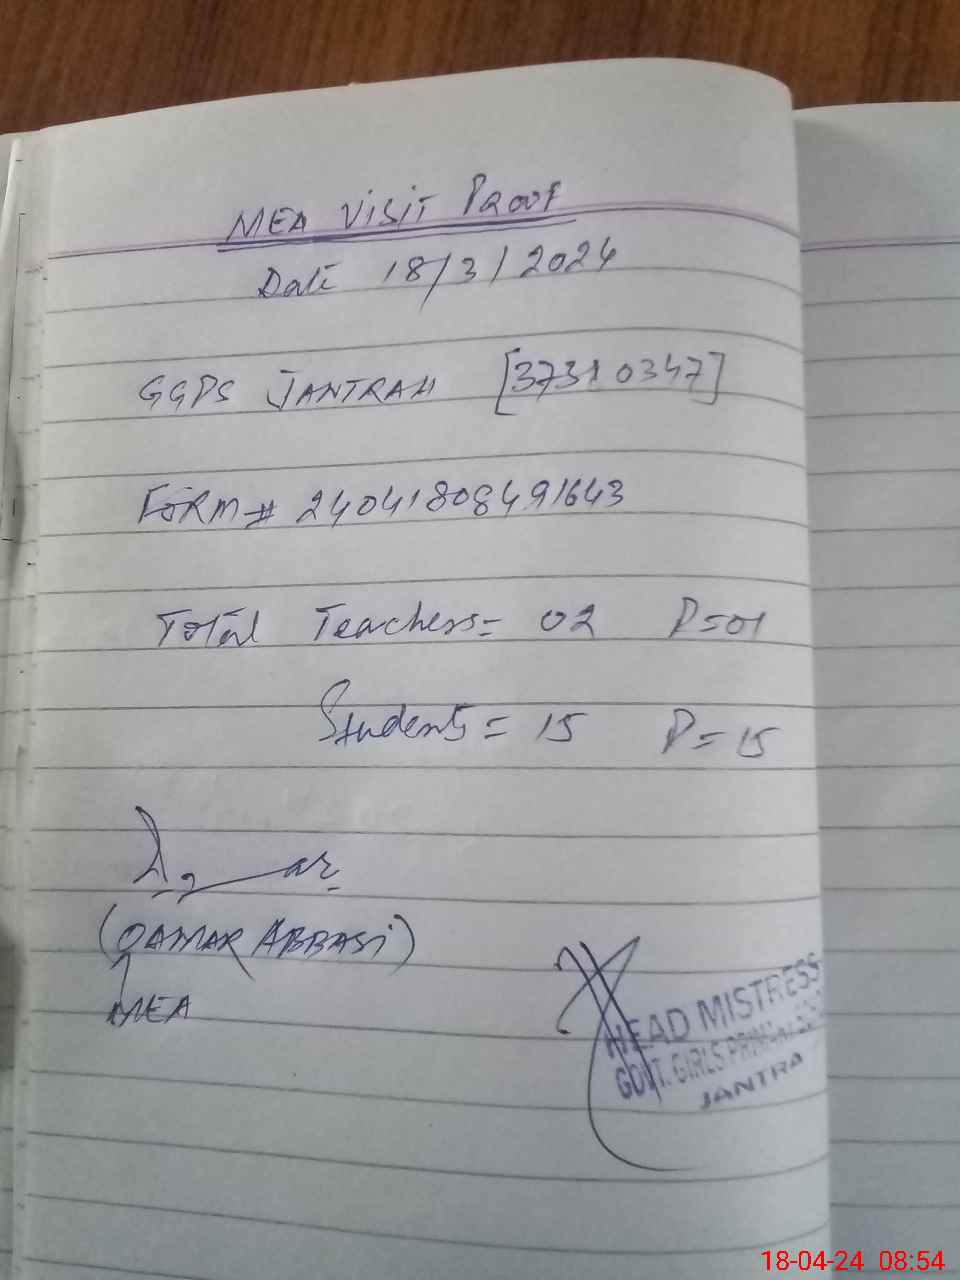 MEA VISIT PROOF
Date 18/3/2024
GGPS JANTRAH [37310347]
FORM# 24041808491643
Total Teachers= 02 P=01
Students= 15 P=15
(QAMAR ABBASI)
MEA
HEAD MISTRESS
GOVT. GIRLS PRIMARY
JANTRA
18-04-24 08:54